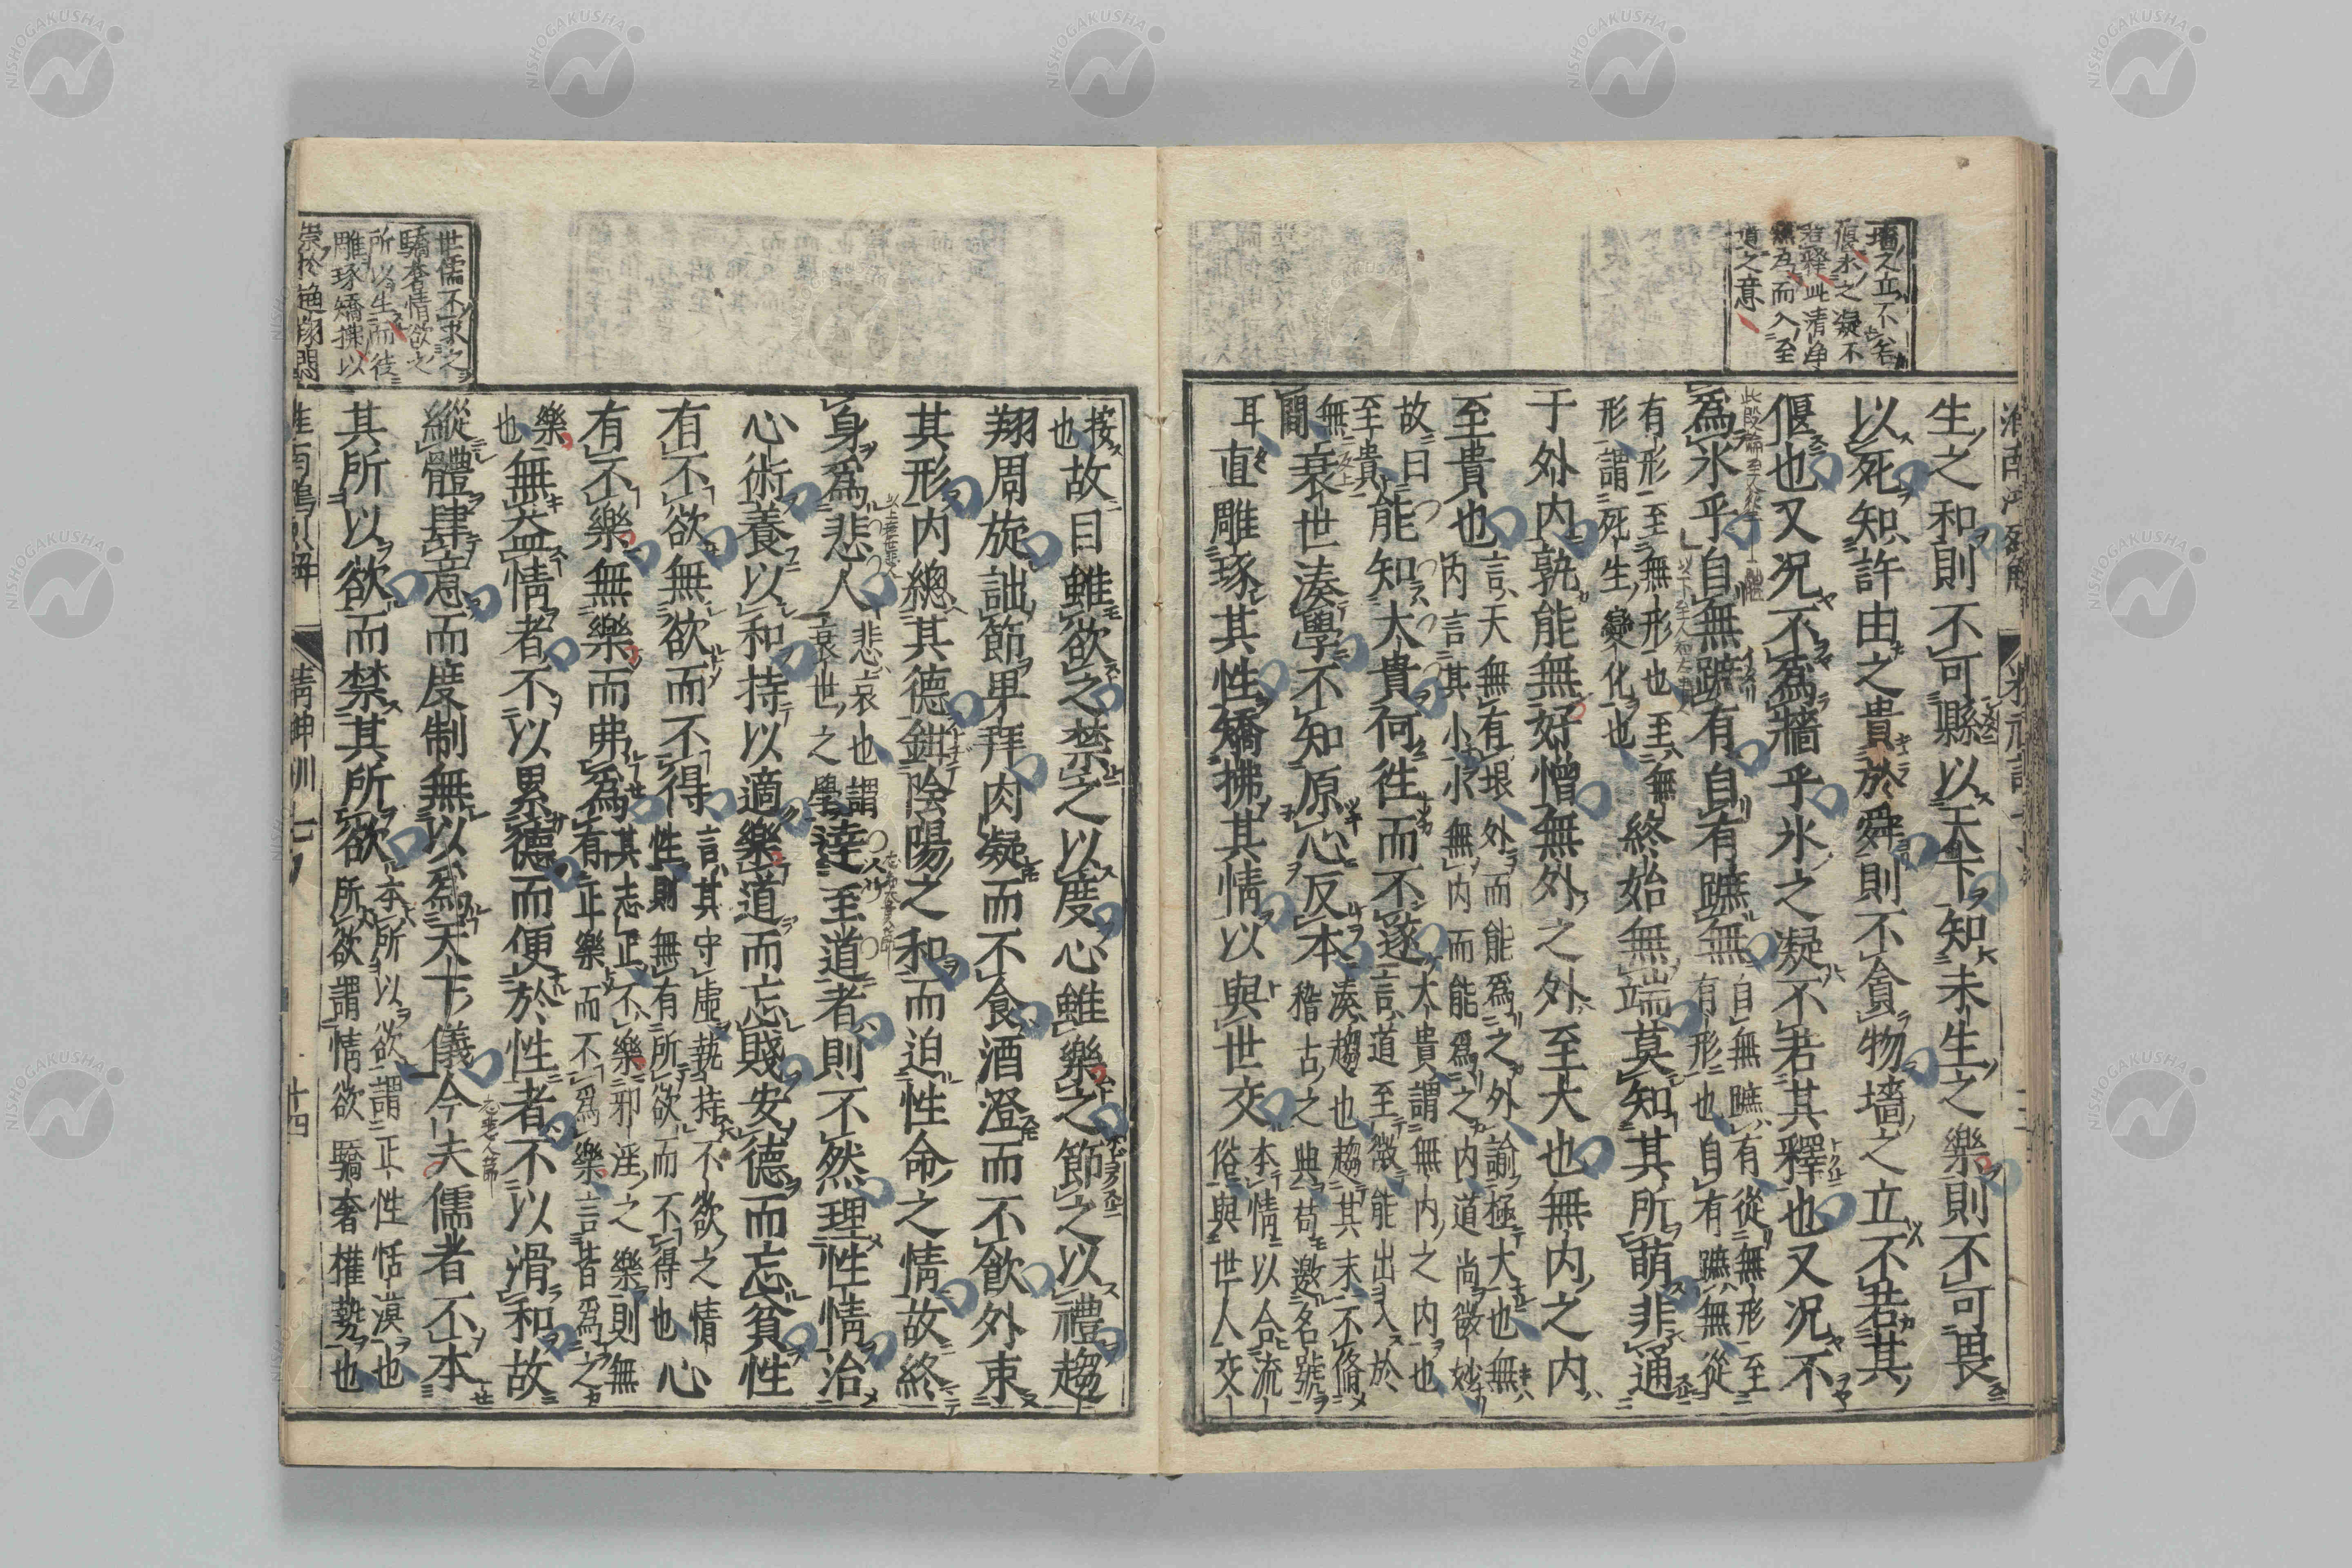 牆之立不若
偃氷之凝不
若釋此清淨
無為而入至
道之意
生之和則不可縣以天下知未生之樂則不可畏
以死知許由之貴於舜則不貪物墻之立不若其
偃也又况不為牆乎氷之凝不若其釋也又况不
為氷乎自無蹠有自有蹠無
自無蹠有從無形至
有形也自有蹠無從
有形至無形也至無
形謂死生變化也
終始無端莫知其所萌非通
于外内孰能無好憎無外之外至大也無内之内
至貴也
言天無有垠外而能為之外諭極大也無
内言其小小無内而能為之内道尚微妙
故曰
至貴
能知大貴何徃而不遂
大貴謂無内之内也
言道至微能出入於
無
間
衰世湊學不知原心反本
湊趨也趨其末不脩
稽古之典苟邀名號
耳
直雕琢其性矯拂其情以與世交
本情以合流
俗與世人交
淮南鴻烈解
精神訓七
十四
世儒不求之
驕奢情欲之
所以生而徒
雕琢矯揉以
按
也
故目雖欲之禁之以度心雖樂之節之以禮趨
翔周旋詘節畢拜肉凝而不食酒澄而不飲外束
其形内總其德鉗陰陽之和而迫性命之情故終
身為悲人
悲哀也謂
衰世之學
達至道者則不然理性情治
心術養以和持以適樂道而忘賤安德而忘貧性
有不欲無欲而不得
言其守虛執持不欲之情
性則無有所欲而不得也
心
有不樂無樂而弗為
其志正不樂邪淫之樂則無
有正樂而不為樂言皆為之
樂
也
無益情者不以累德而便於性者不以滑和故
縱體肆意而度制無以為天下儀今夫儒者不本
其所以欲而禁其所欲
本所以欲謂正性恬漠也
所欲謂情欲驕奢權勢也